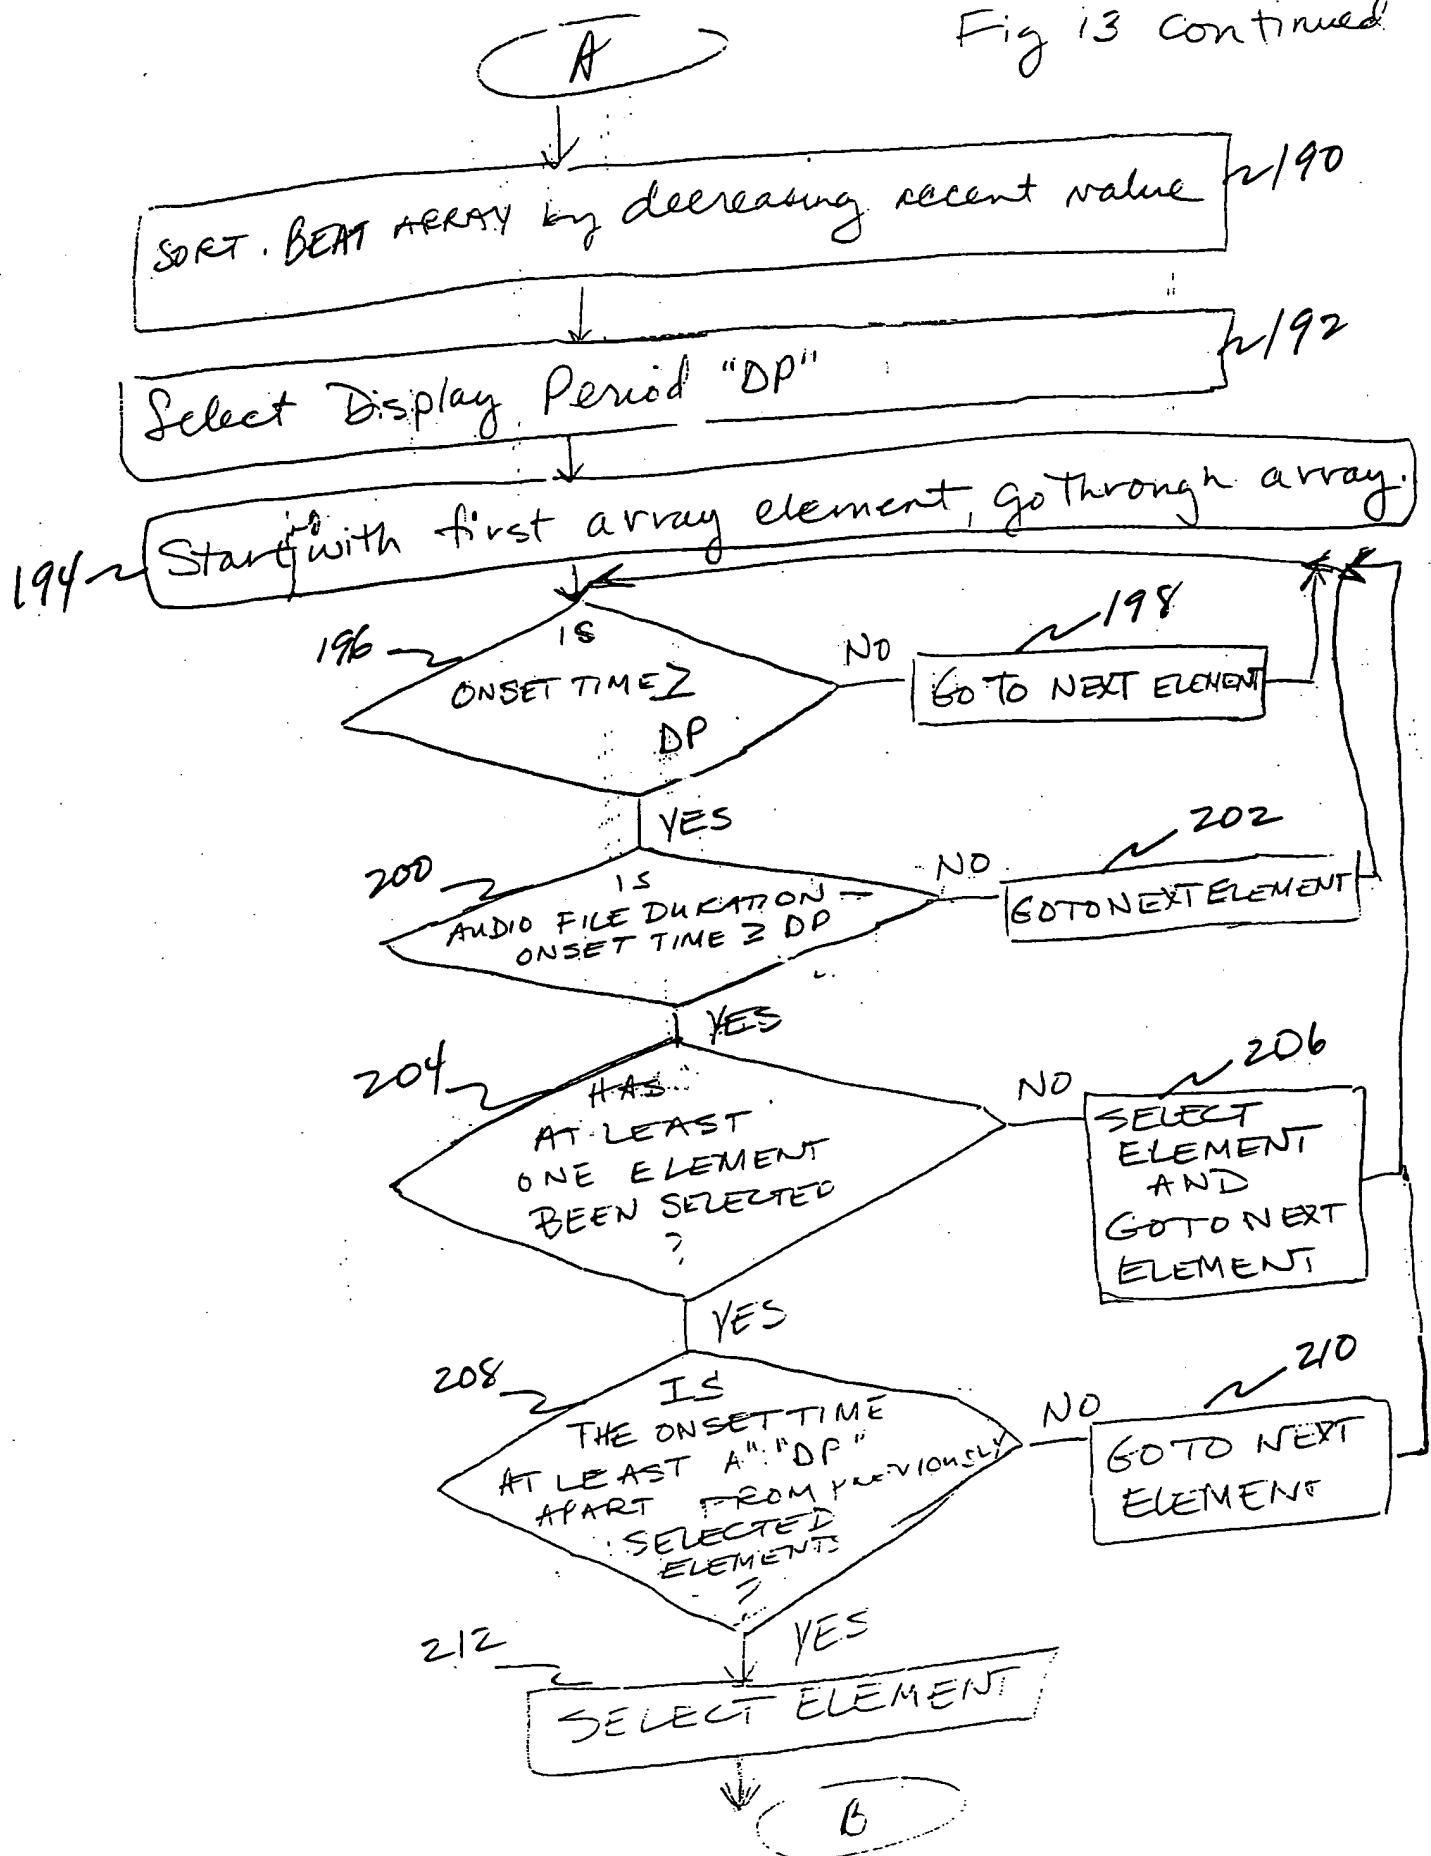 Fig 13 continued
A
SORT. BEAT ARRAY by decreasing accent value
190
Select Display Period "DP"
192
Starting with first array element, go through array.
194
196
IS
ONSET TIME ≥
DP
NO
198
GO TO NEXT ELEMENT
YES
200
IS
AUDIO FILE DURATION —
ONSET TIME ≥ DP
NO
202
GO TO NEXT ELEMENT
YES
204
HAS
AT LEAST
ONE ELEMENT
BEEN SELECTED
?
NO
206
SELECT
ELEMENT
AND
GO TO NEXT
ELEMENT
YES
208
IS
THE ONSET TIME
AT LEAST A "DP"
APART FROM PREVIOUSLY
SELECTED
ELEMENTS
?
NO
210
GO TO NEXT
ELEMENT
YES
212
SELECT ELEMENT
B